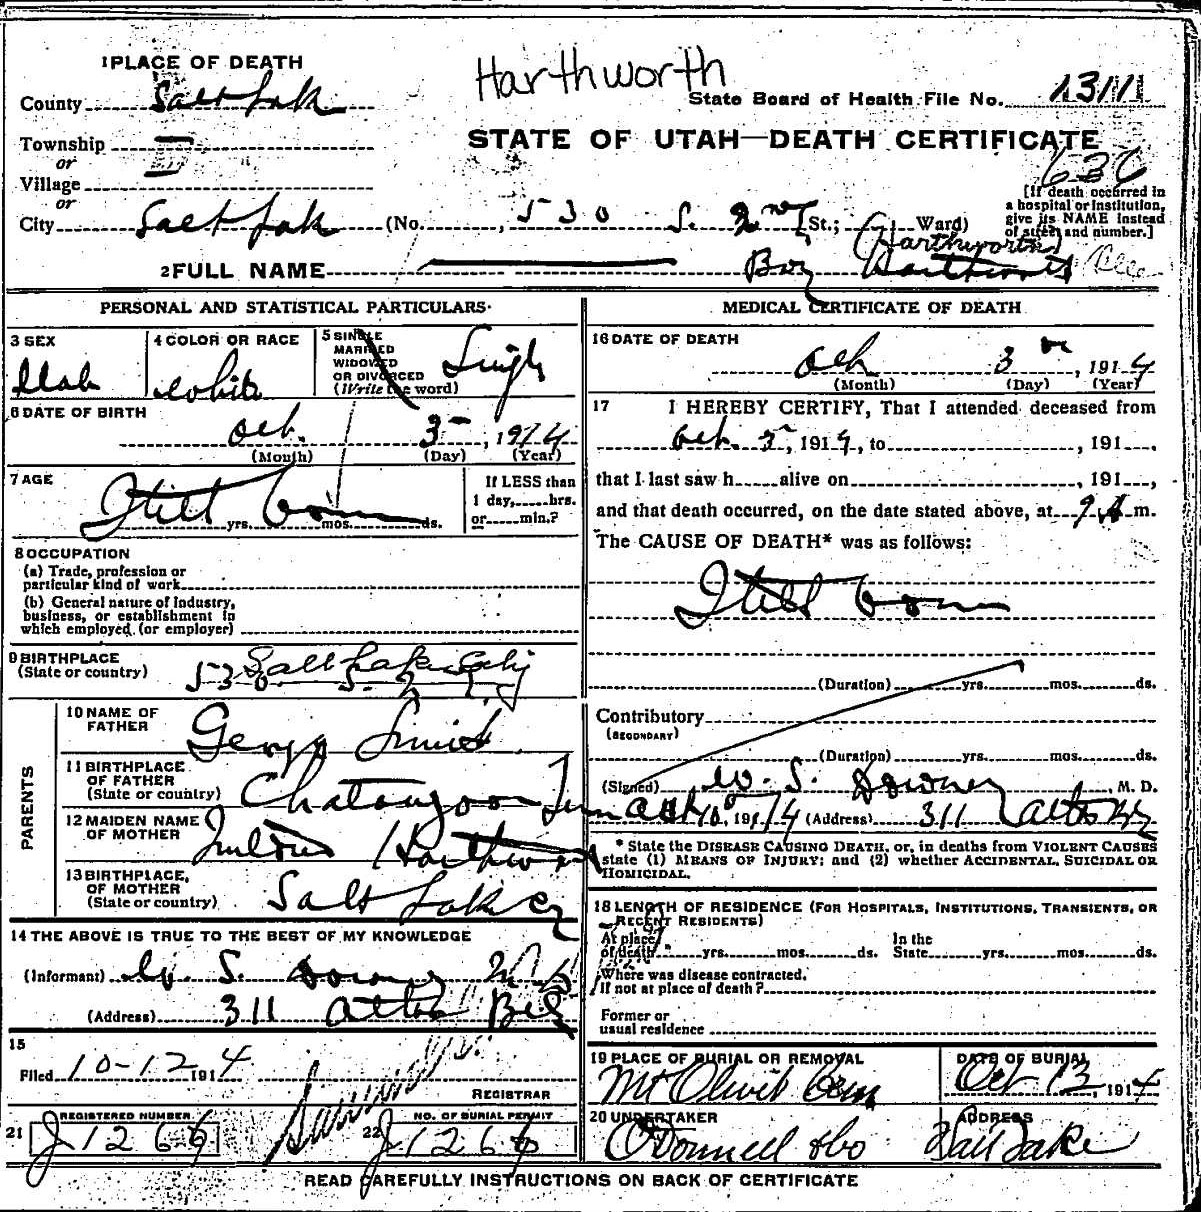 Harthworth
1 PLACE OF DEATH
County Salt Lak
State Board of Health File No. 13111
Township
STATE OF UTAH—DEATH CERTIFICATE
or
Village
636
or
City Salt Lak (No. 530 S. 2nd St.; Ward)
[If death occurred in
a hospital or institution,
give its NAME instead
of street and number.]
(Harthworth)
2 FULL NAME Boy Harthworth
PERSONAL AND STATISTICAL PARTICULARS
3 SEX
Mak
4 COLOR OR RACE
White
5 SINGLE
MARRIED
WIDOWED
OR DIVORCED
(Write the word)
Single
6 DATE OF BIRTH
Oct. 3 , 1914
(Month) (Day) (Year)
7 AGE
Still born
yrs. mos. ds.
If LESS than
1 day, hrs.
or min.?
8 OCCUPATION
(a) Trade, profession or
particular kind of work
(b) General nature of industry,
business, or establishment in
which employed (or employer)
9 BIRTHPLACE
(State or country)
Salt Lake City
530 S. 2
PARENTS
10 NAME OF
FATHER
George Smith
11 BIRTHPLACE
OF FATHER
(State or country)
Chatanoogoo Tenn
12 MAIDEN NAME
OF MOTHER
Harthworth
13 BIRTHPLACE,
OF MOTHER
(State or country)
Salt Lake Cy
14 THE ABOVE IS TRUE TO THE BEST OF MY KNOWLEDGE
(Informant) W. S. Downey M D
(Address) 311 Atlas Blg
15
Filed 10-12 1914
REGISTRAR
REGISTERED NUMBER
21 J 1266
NO. OF BURIAL PERMIT
22 J 1266
MEDICAL CERTIFICATE OF DEATH
16 DATE OF DEATH
Oct 3 , 1914
(Month) (Day) (Year)
17 I HEREBY CERTIFY, That I attended deceased from
Oct. 3, 1914, to , 191 ,
that I last saw h alive on , 191 ,
and that death occurred, on the date stated above, at 9 A m.
The CAUSE OF DEATH* was as follows:
Still born
(Duration) yrs. mos. ds.
Contributory
(SECONDARY)
(Duration) yrs. mos. ds.
(Signed) W. S. Downey, M. D.
Oct 10, 1914 (Address) 311 Atlas Blg
* State the DISEASE CAUSING DEATH, or, in deaths from VIOLENT CAUSES
state (1) MEANS OF INJURY; and (2) whether ACCIDENTAL, SUICIDAL OR
HOMICIDAL.
18 LENGTH OF RESIDENCE (FOR HOSPITALS, INSTITUTIONS, TRANSIENTS, OR
RECENT RESIDENTS)
At place
of death yrs. mos. ds.
In the
State yrs. mos. ds.
Where was disease contracted.
if not at place of death?
Former or
usual residence
19 PLACE OF BURIAL OR REMOVAL
Mt Olivit Cem
DATE OF BURIAL
Oct 13, 1914
20 UNDERTAKER
O'Donnell & Co
ADDRESS
Salt Lake
READ CAREFULLY INSTRUCTIONS ON BACK OF CERTIFICATE